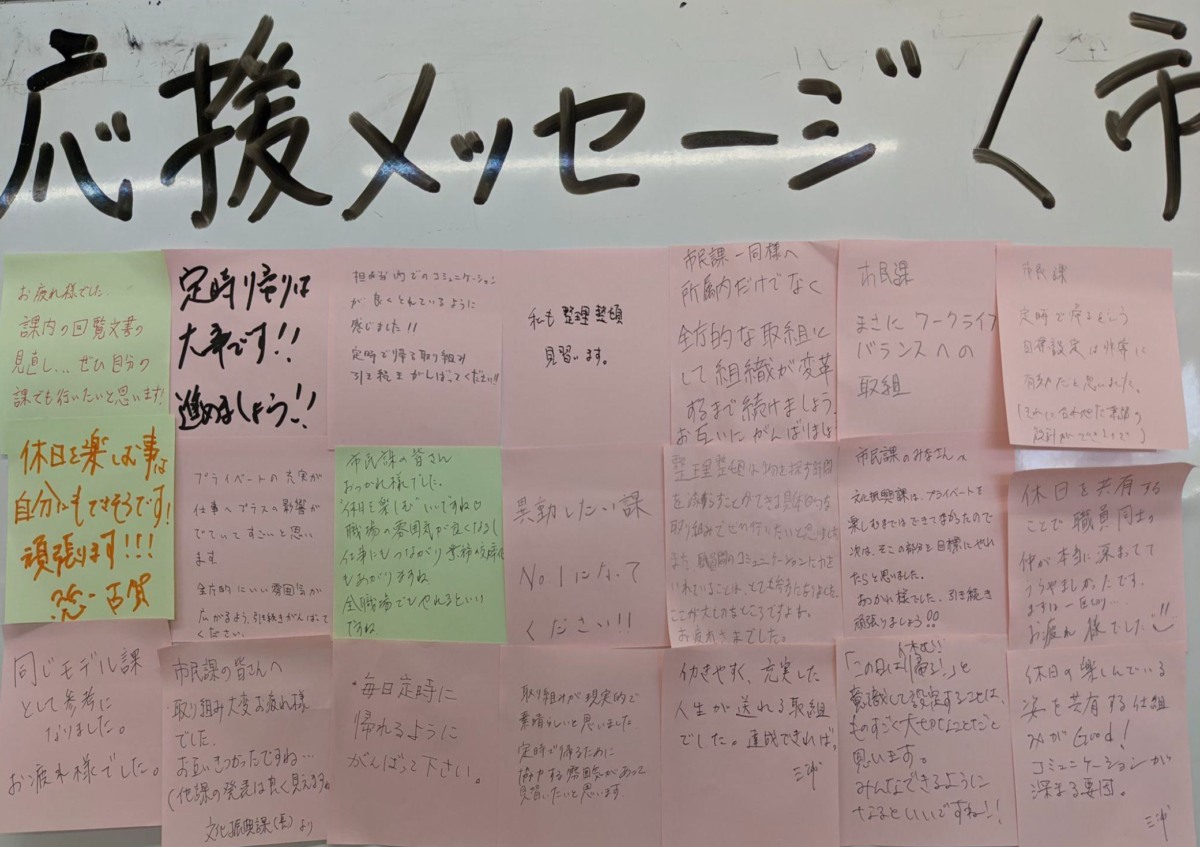 応援メッセージ〈市
お疲れ様でした。
課内の回覧文書の
見直し...ぜひ自分の
課でも行いたいと思います!
定時り帰りは
大事です!!
進めましょう!!
担当内でのコミュニケーション
が良くとれているように
感じました!!
定時で帰る取り組み
引き続きがんばってください!!
私も整理整頓
見習います。
市民課一同様へ
所属内だけでなく
全庁的な取組と
して組織が変革
するまで続けましょう。
お互いにがんばりましょ
市民課
まさにワークライフ
バランスへの
取組
市民課
定時で帰るという
目標設定は非常に
有効だと思いました。
休日を楽しむ事は
自分にもできそうです!
頑張ります!!!
プライベートの充実が
仕事へプラスの影響が
でていてすごいと思い
ます。
全庁的にいい雰囲気が
広がるよう、引き続きがんばって
ください。
市民課の皆さん
おつかれ様でした。
休日を楽しむ いいですね♡
職場の雰囲気が良くなるし
仕事にもつながり業務の効率化
もあがりますね
全職場でもやれるといい
ですね
異動したい課
No.1になって
ください!!
整理整頓は物を探す時間
を減らすことができる具体的な
取り組みでぜひ行いたいと思いました
また、職員間のコミュニケーションに力を
いれていることは、とても参考になりました。
ここが大切なところですよね。
お疲れさまでした。
市民課のみなさんへ
文化振興課は、プライベートを
楽しむまではできてなかったので
次は、そこの部分を目標にやれ
たらと思いました。
おつかれ様でした。引き続き
頑張りましょう!!
休日を共有する
ことで職員同士の
仲が本当に深まってて
うらやましかったです。
まずは一区切り...
お疲れ様でした!!
同じモデル課
として参考に
なりました。
お疲れ様でした。
市民課の皆さんへ
取り組み大変お疲れ様
でした。
お互いきつかったですね…
(他課の発表は良く見えますね
文化振興課(長)より
・毎日定時に
帰れるように
がんばって下さい。
取り組みが現実的で
素晴らしいと思いました
定時で帰るために
協力する雰囲気があって
見習いたいと思います。
働きやすく、充実した
人生が送れる取組
でした。達成できれば。
三沖
「この日は帰る!」と
意識して設定することは、
ものすごく大切なことだと
思います。
みんなできるように
なるといいですね!!
休日の楽しんでいる
姿を共有する仕組
みがGood!
コミュニケーションが
深まる要因。
三沖